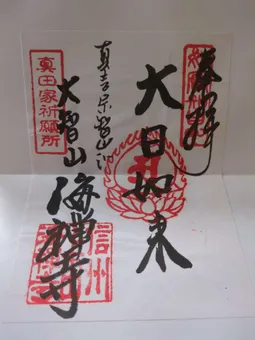 奉拝
大日如来
真言宗智山派
真田家祈願所
大智山
海禅寺
信州